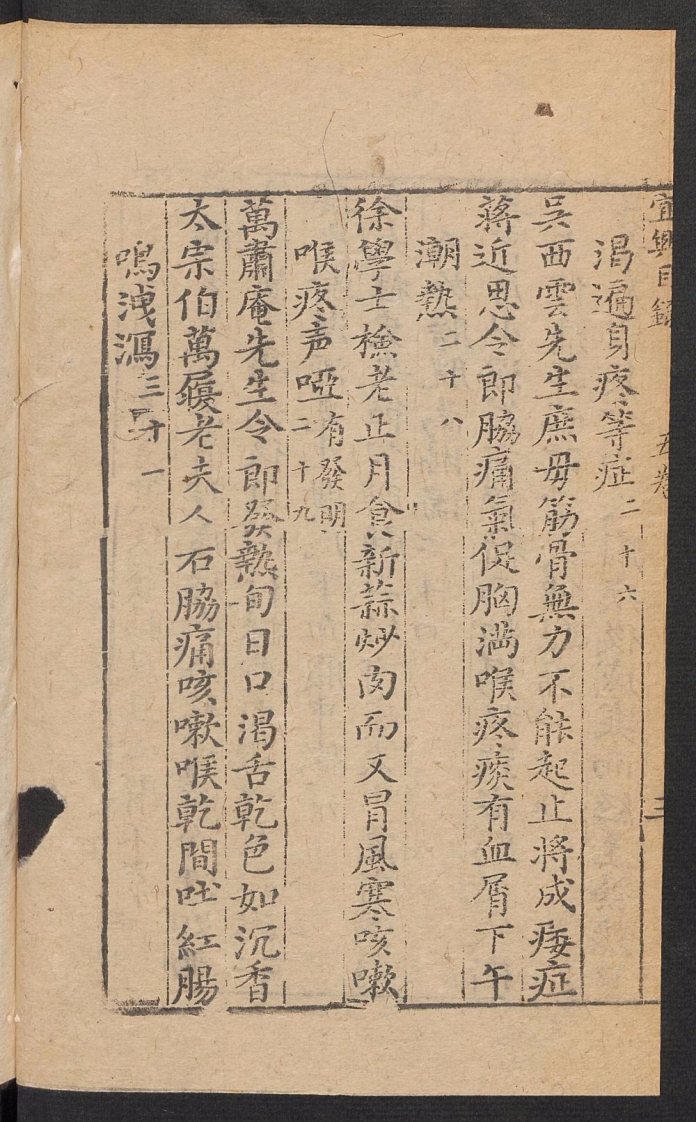 宜興目錄 五卷 三
渴遍身疼等症二十六
吳西雲先生庶母筋骨無力不能起止將成痿症
蔣近思令郎脇痛氣促胸滿喉疼痰有血屑下午
潮熱二十八
徐學士檢老正月食新蒜炒肉而又冒風寒咳嗽
喉疼声啞有發明二十九
萬肅庵先生令郎發熱旬日口渴舌乾色如沉香
太宗伯萬履老夫人右脇痛咳嗽喉乾間吐紅腸
鳴洩瀉三十一